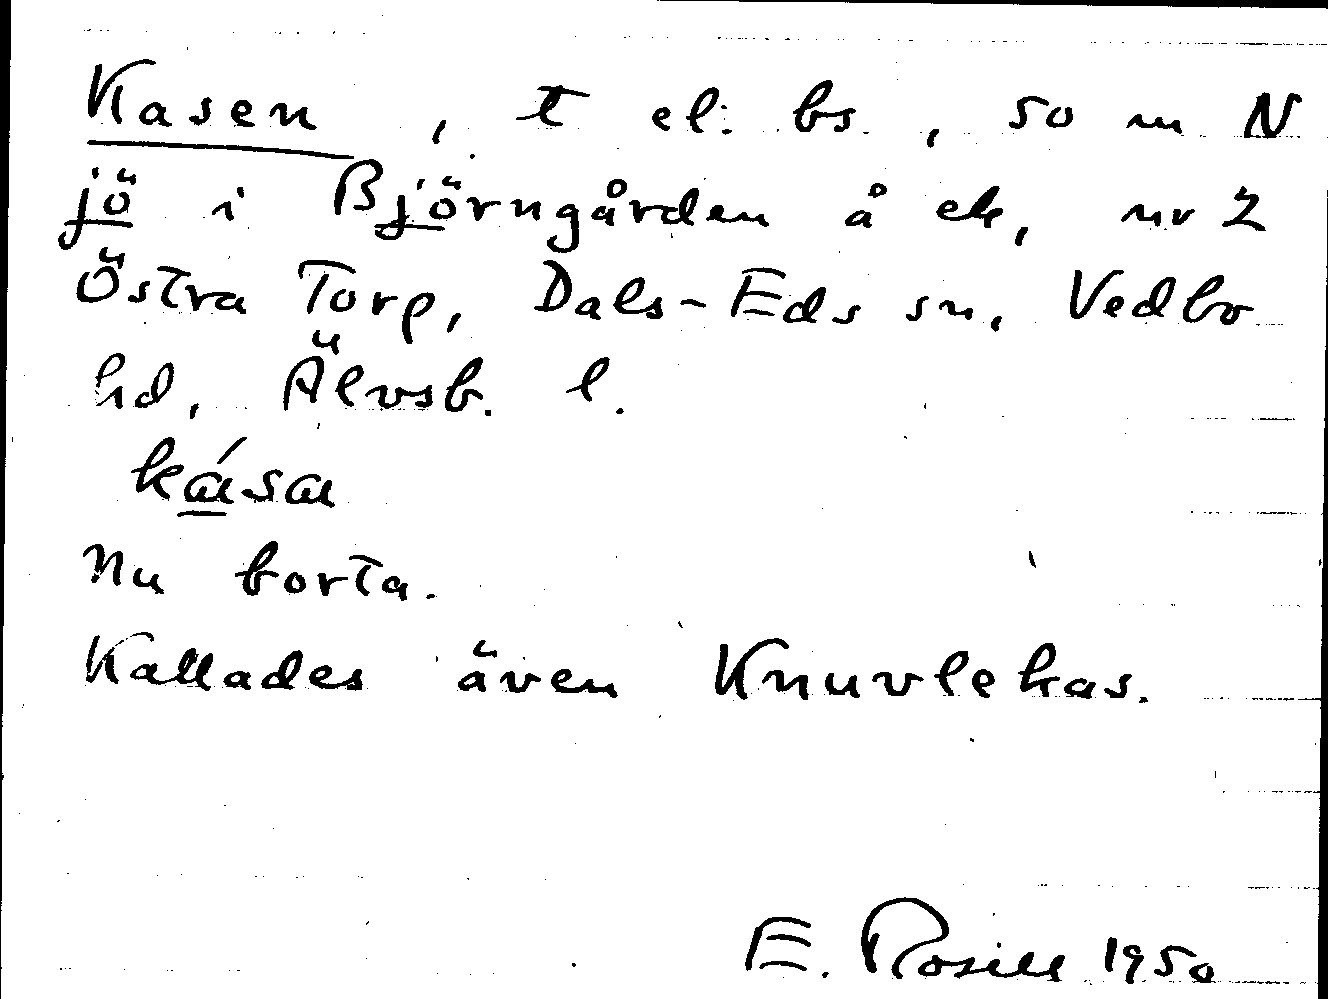 Kasen, t el. bs., so m N
jö i Björngården å ek, nr 2
Östra Torp, Dals-Eds sn, Vedbo
hd, Älvsb. l.
kása
Nu borta.
Kallades även Knuvlekas.
E. Rosell 1950